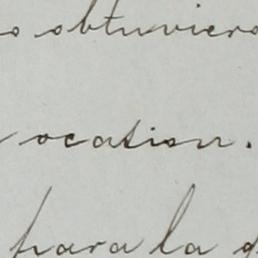 o obtuviero
ocation.
para la q